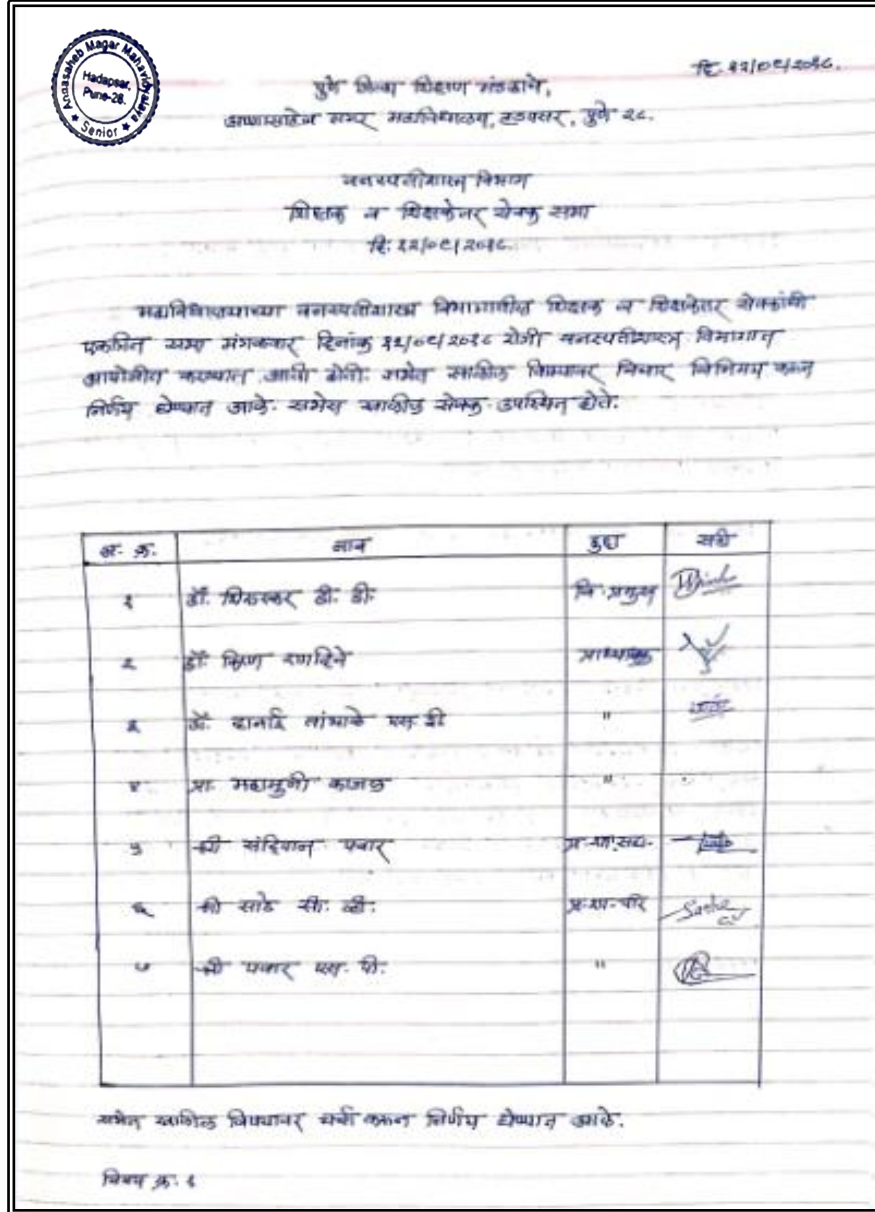 Annasaheb Magar Mahavidyalaya
Hadapsar,
Pune-28.
★ Senior ★
पुणे जिल्हा शिक्षण मंडळाचे,
अण्णासाहेब मगर महाविद्यालय, हडपसर, पुणे २८.
वनस्पतीशास्त्र विभाग
शिक्षक व शिक्षकेतर सेवक सभा
महाविद्यालयाच्या वनस्पतीशास्त्र विभागातील शिक्षक व शिक्षकेतर सेवकांची
एकत्रित सभा मंगळवार दिनांक रोजी वनस्पतीशास्त्र विभागात
आयोजीत करण्यात आली होती. सभेत खालील विषयावर विचार विनिमय करून
निर्णय घेण्यात आले. सभेस खालील सेवक उपस्थित होते.
अ. क्र. नाव हुद्दा सही
१ डॉ. डी. डी. वि. प्रमुख
२ डॉ. किरण रणदिवे प्राध्यापक
३ डॉ. एस. डी "
४ प्रा. महामुनी काजळ "
५ श्री संदिपान पवार प्र. शा. सहा.
६ श्री साठे सी. व्ही. Sathe
७ श्री पवार एस. पी. "
सभेत खालील विषयावर चर्चा करून निर्णय घेण्यात आले.
विषय क्र. १